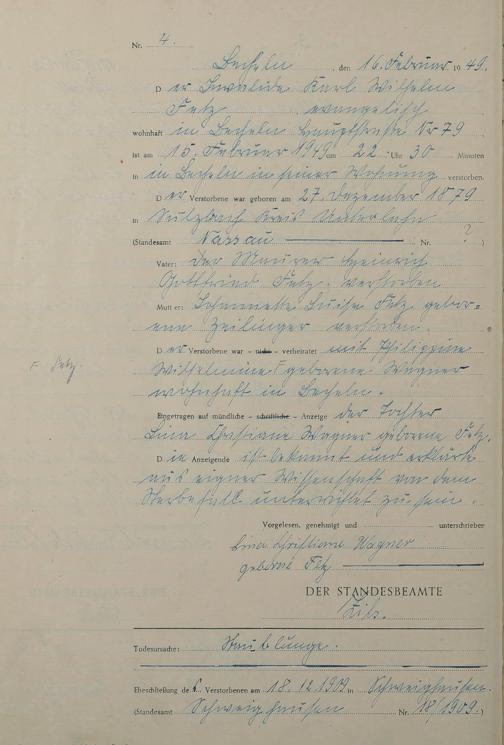 Nr. 4.
Becheln, den 16. Februar 1949.
Der Invalide Karl Wilhelm
Fetz, evangelisch
wohnhaft in Becheln Hauptstraße Nr 79
ist am 15. Februar 1949 um 22 Uhr 30 Minuten
in in Becheln in seiner Wohnung verstorben.
Der Verstorbene war geboren am 27. Dezember 1879
in Sulzbach Kreis Unterlahn
(Standesamt Nassau Nr. ?)
Vater: Der Maurer Heinrich
Gottfried Fetz, verstorben
Mutter: Luise Fetz gebor-
ene Zeilinger verstorben.
Der Verstorbene war – nicht – verheiratet mit Philippine
Wilhelmine geborene Wagner
wohnhaft in Becheln.
Eingetragen auf mündliche – schriftliche – Anzeige der Tochter
Lina Christiane Wagner geborene Fetz.
Die Anzeigende ist bekannt und erklärte
aus eigner Wissenschaft von dem
Sterbefall unterrichtet zu sein.
Vorgelesen, genehmigt und unterschrieben
Lina Christiana Wagner
geborene Fetz
DER STANDESBEAMTE
Todesursache: Staublunge.
Eheschließung des Verstorbenen am 18.12.1909 in Schweighausen.
(Standesamt Schweighausen Nr. 18/1909.)
F. Fetz